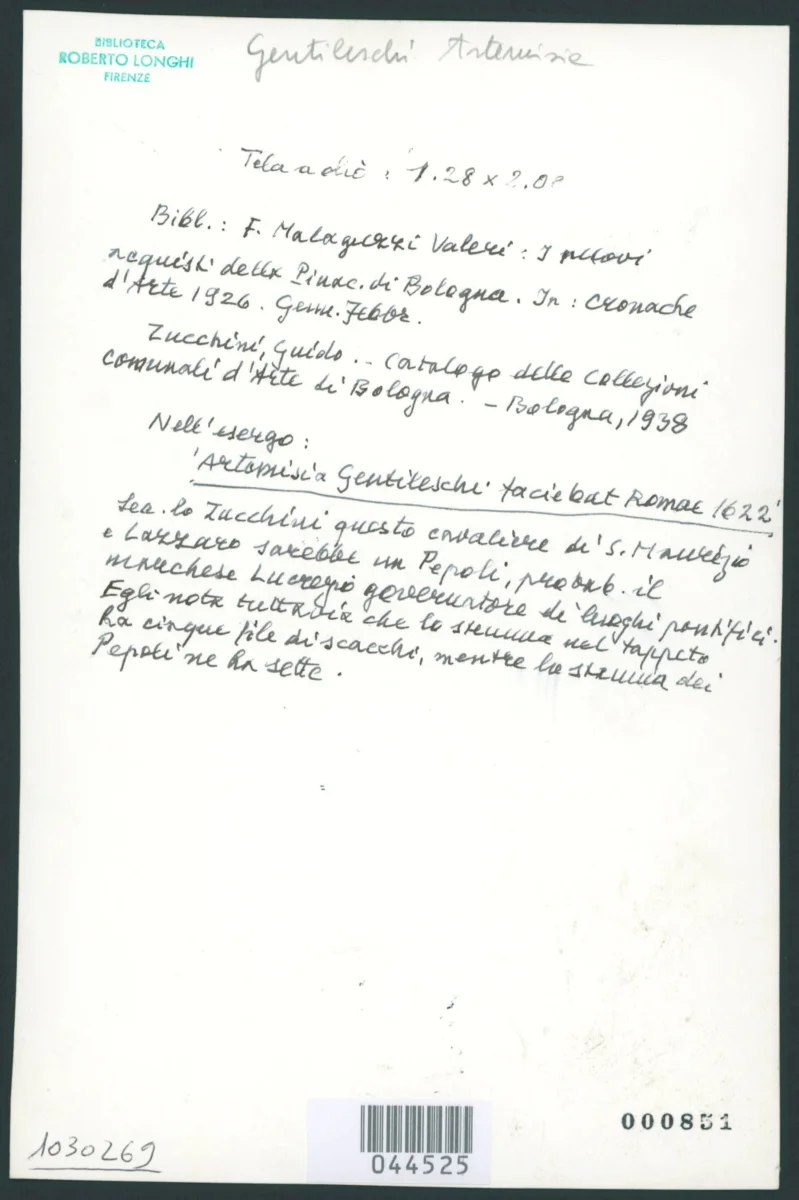 BIBLIOTECA
ROBERTO LONGHI
FIRENZE
Gentileschi Artemisia
Tela a olio : 1.28 x 2.08
Bibl.: F. Malaguzzi Valeri : I nuovi
acquisti della Pinac. di Bologna. In : Cronache
d'Arte 1926. Genn. Febbr.
Zucchini, Guido .- Catalogo delle Collezioni
comunali d'Arte di Bologna. - Bologna, 1938
Nell'esergo:
'Artemisia Gentileschi faciebat Romae 1622'
Sec. lo Zucchini questo cavaliere di S. Maurizio
e Lazzaro sarebbe un Pepoli, probab. il
marchese Lucrezio governatore di luoghi pontifici.
Egli nota tuttavia che lo stemma nel tappeto
ha cinque file di scacchi, mentre lo stemma dei
Pepoli ne ha sette.
1030269
044525
000851